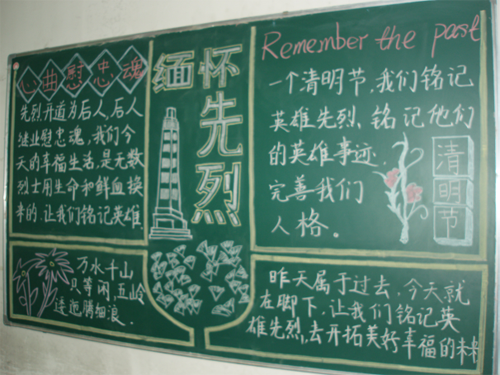 心曲慰忠魂
先烈开道为后人,后人
继业慰忠魂,我们今
天的幸福生活,是无数
烈士用生命和鲜血换
来的,让我们铭记英雄
缅怀
先烈
Remember the past
一个清明节,我们铭记
英雄先烈、铭记他们
的英雄事迹.
完善我们
人格。
清明节
万水千山
只等闲,五岭
逶迤腾细浪.
昨天属于过去,今天就
在脚下,让我们铭记英
雄先烈,去开拓美好幸福的未来